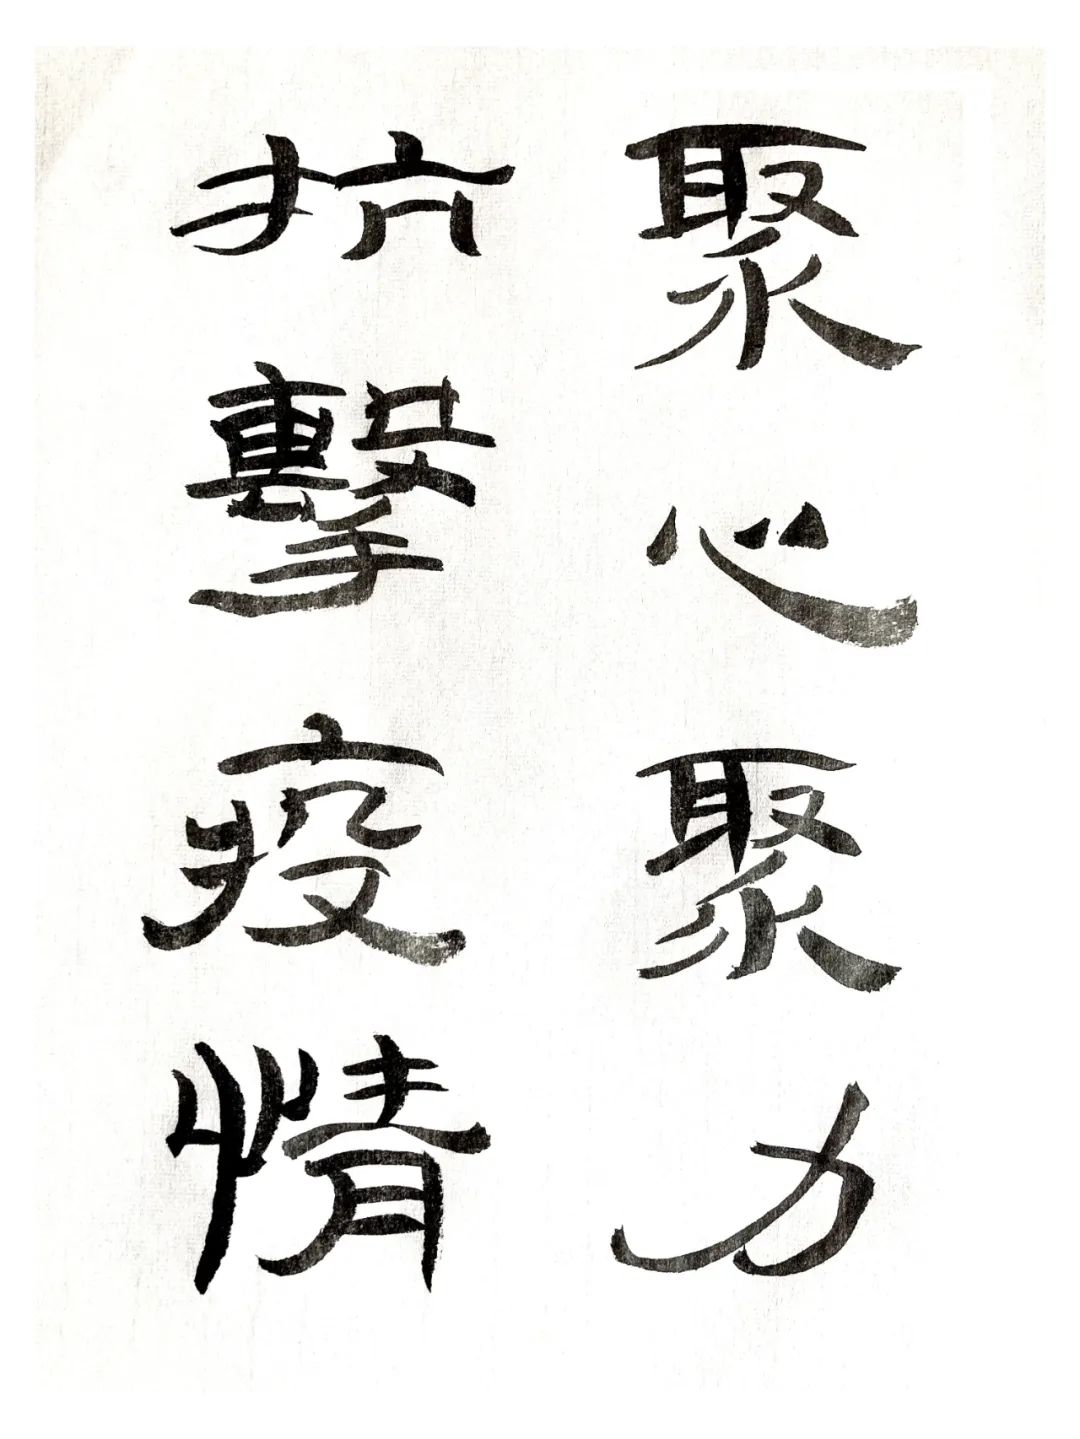 聚心聚力
抗擊疫情